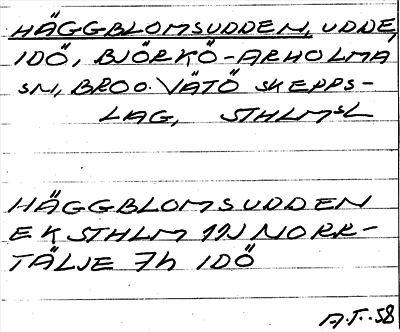 HÄGGBLOMSUDDEN, UDDE,
IDÖ, BJÖRKÖ-ARHOLMA
SN, BRO O. VÄTÖ SKEPPS-
LAG, STHLMSL
HÄGGBLOMSUDDEN
EK STHLM 11N NORR-
TÄLJE 7h IDÖ
A.T. 58